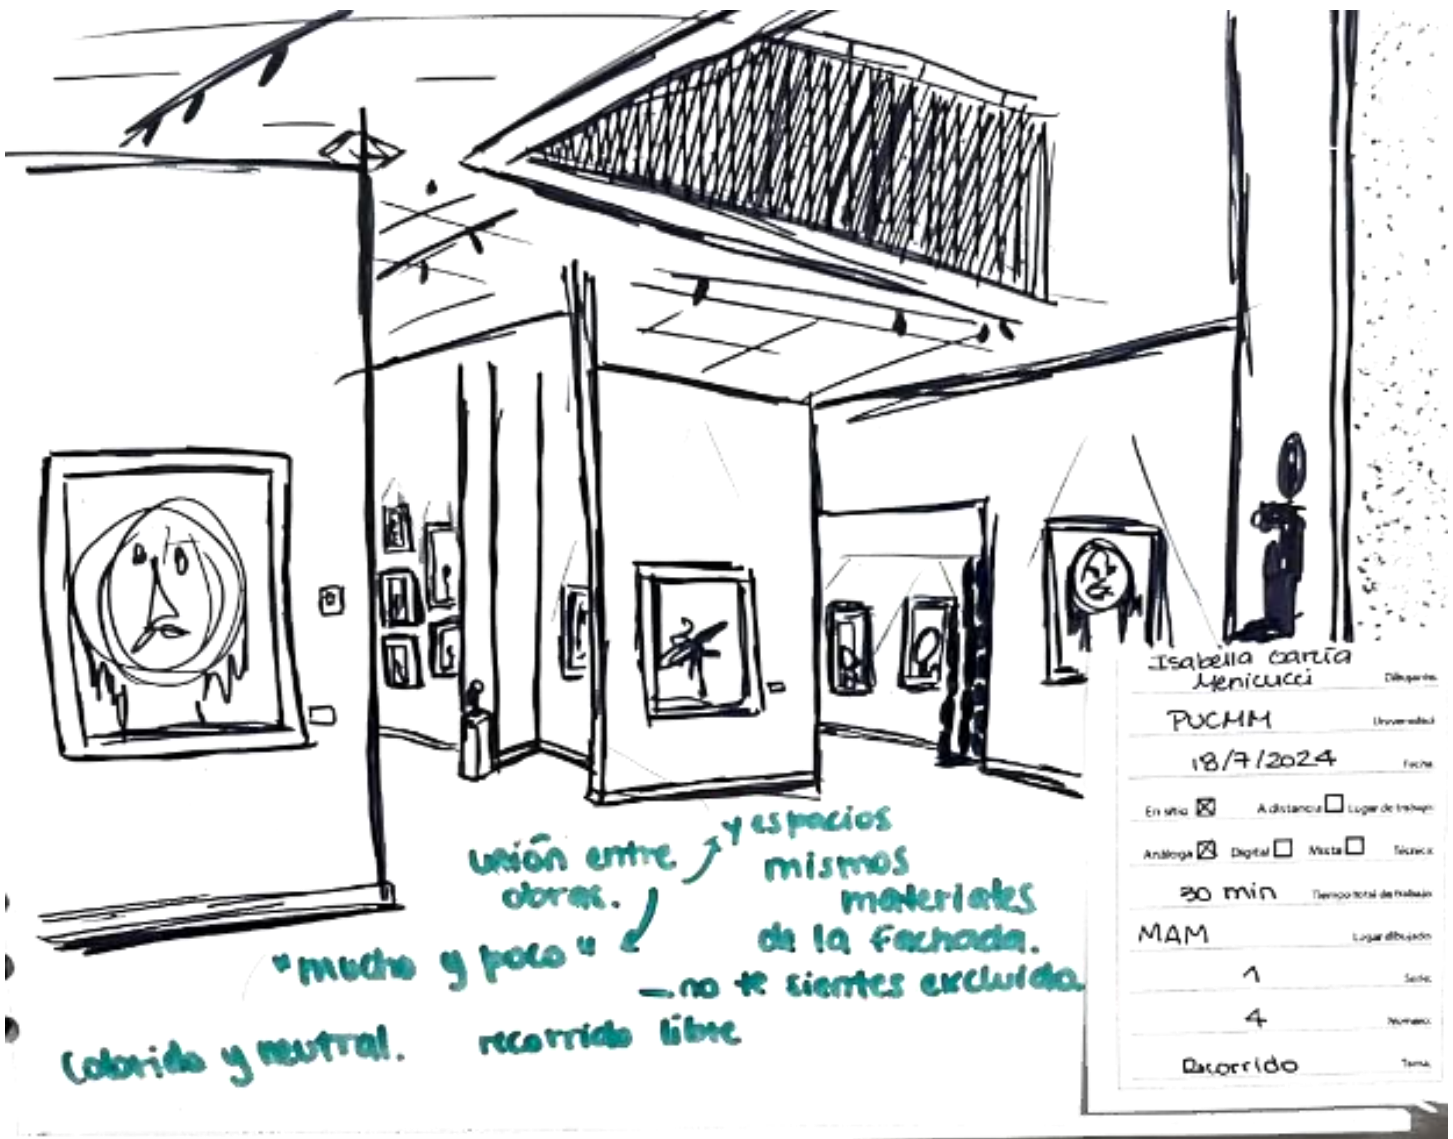 unión entre
obras.
y espacios
mismos
materiales
de la fachada.
"mucho y poco"
- no te sientes excluido.
Colorido y neutral.
recorrido libre
Isabella García
Menicucci Dibujante
PUCMM Universidad
18/7/2024 Fecha
En sitio ☒ A distancia ☐ Lugar de trabajo
Análoga ☒ Digital ☐ Mixta ☐ Técnica
30 min Tiempo total de trabajo
MAM Lugar dibujado
1 Serie
4 Número
Recorrido Tema